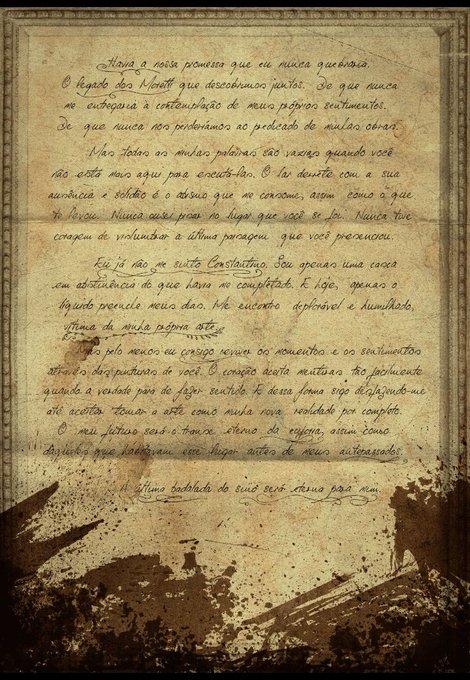 Havia a nossa promessa que eu nunca quebraria.
O legado dos Moretti que descobrimos juntos. De que nunca
me entregaria à contemplação de meus próprios sentimentos.
De que nunca nos perderíamos ao predicado de minhas obras.
Mas todas as minhas palavras são vazias quando você
não está mais aqui para escutá-las. O lar derrete com a sua
ausência e solidão é o abismo que me consome, assim como o que
te levou. Nunca ousei pisar no lugar que você se foi. Nunca tive
coragem de vislumbrar a última paisagem que você presenciou.
Eu já não me sinto Constantino. Sou apenas uma casca
em abstinência do que havia me completado. E hoje, apenas o
líquido preenche meus dias. Me encontro deplorável e humilhado,
vítima da minha própria arte.
Mas pelo menos eu consigo reviver os momentos e os sentimentos
através das pinturas de você. O coração aceita mentiras tão facilmente
quando a verdade para de fazer sentido. E dessa forma sigo desfazendo-me
até aceitar tomar a arte como minha nova realidade por completo.
O meu futuro será o transe eterno da euforia, assim como
daqueles que habitavam esse lugar antes de meus antepassados.
A última badalada do sino será eterna para mim.